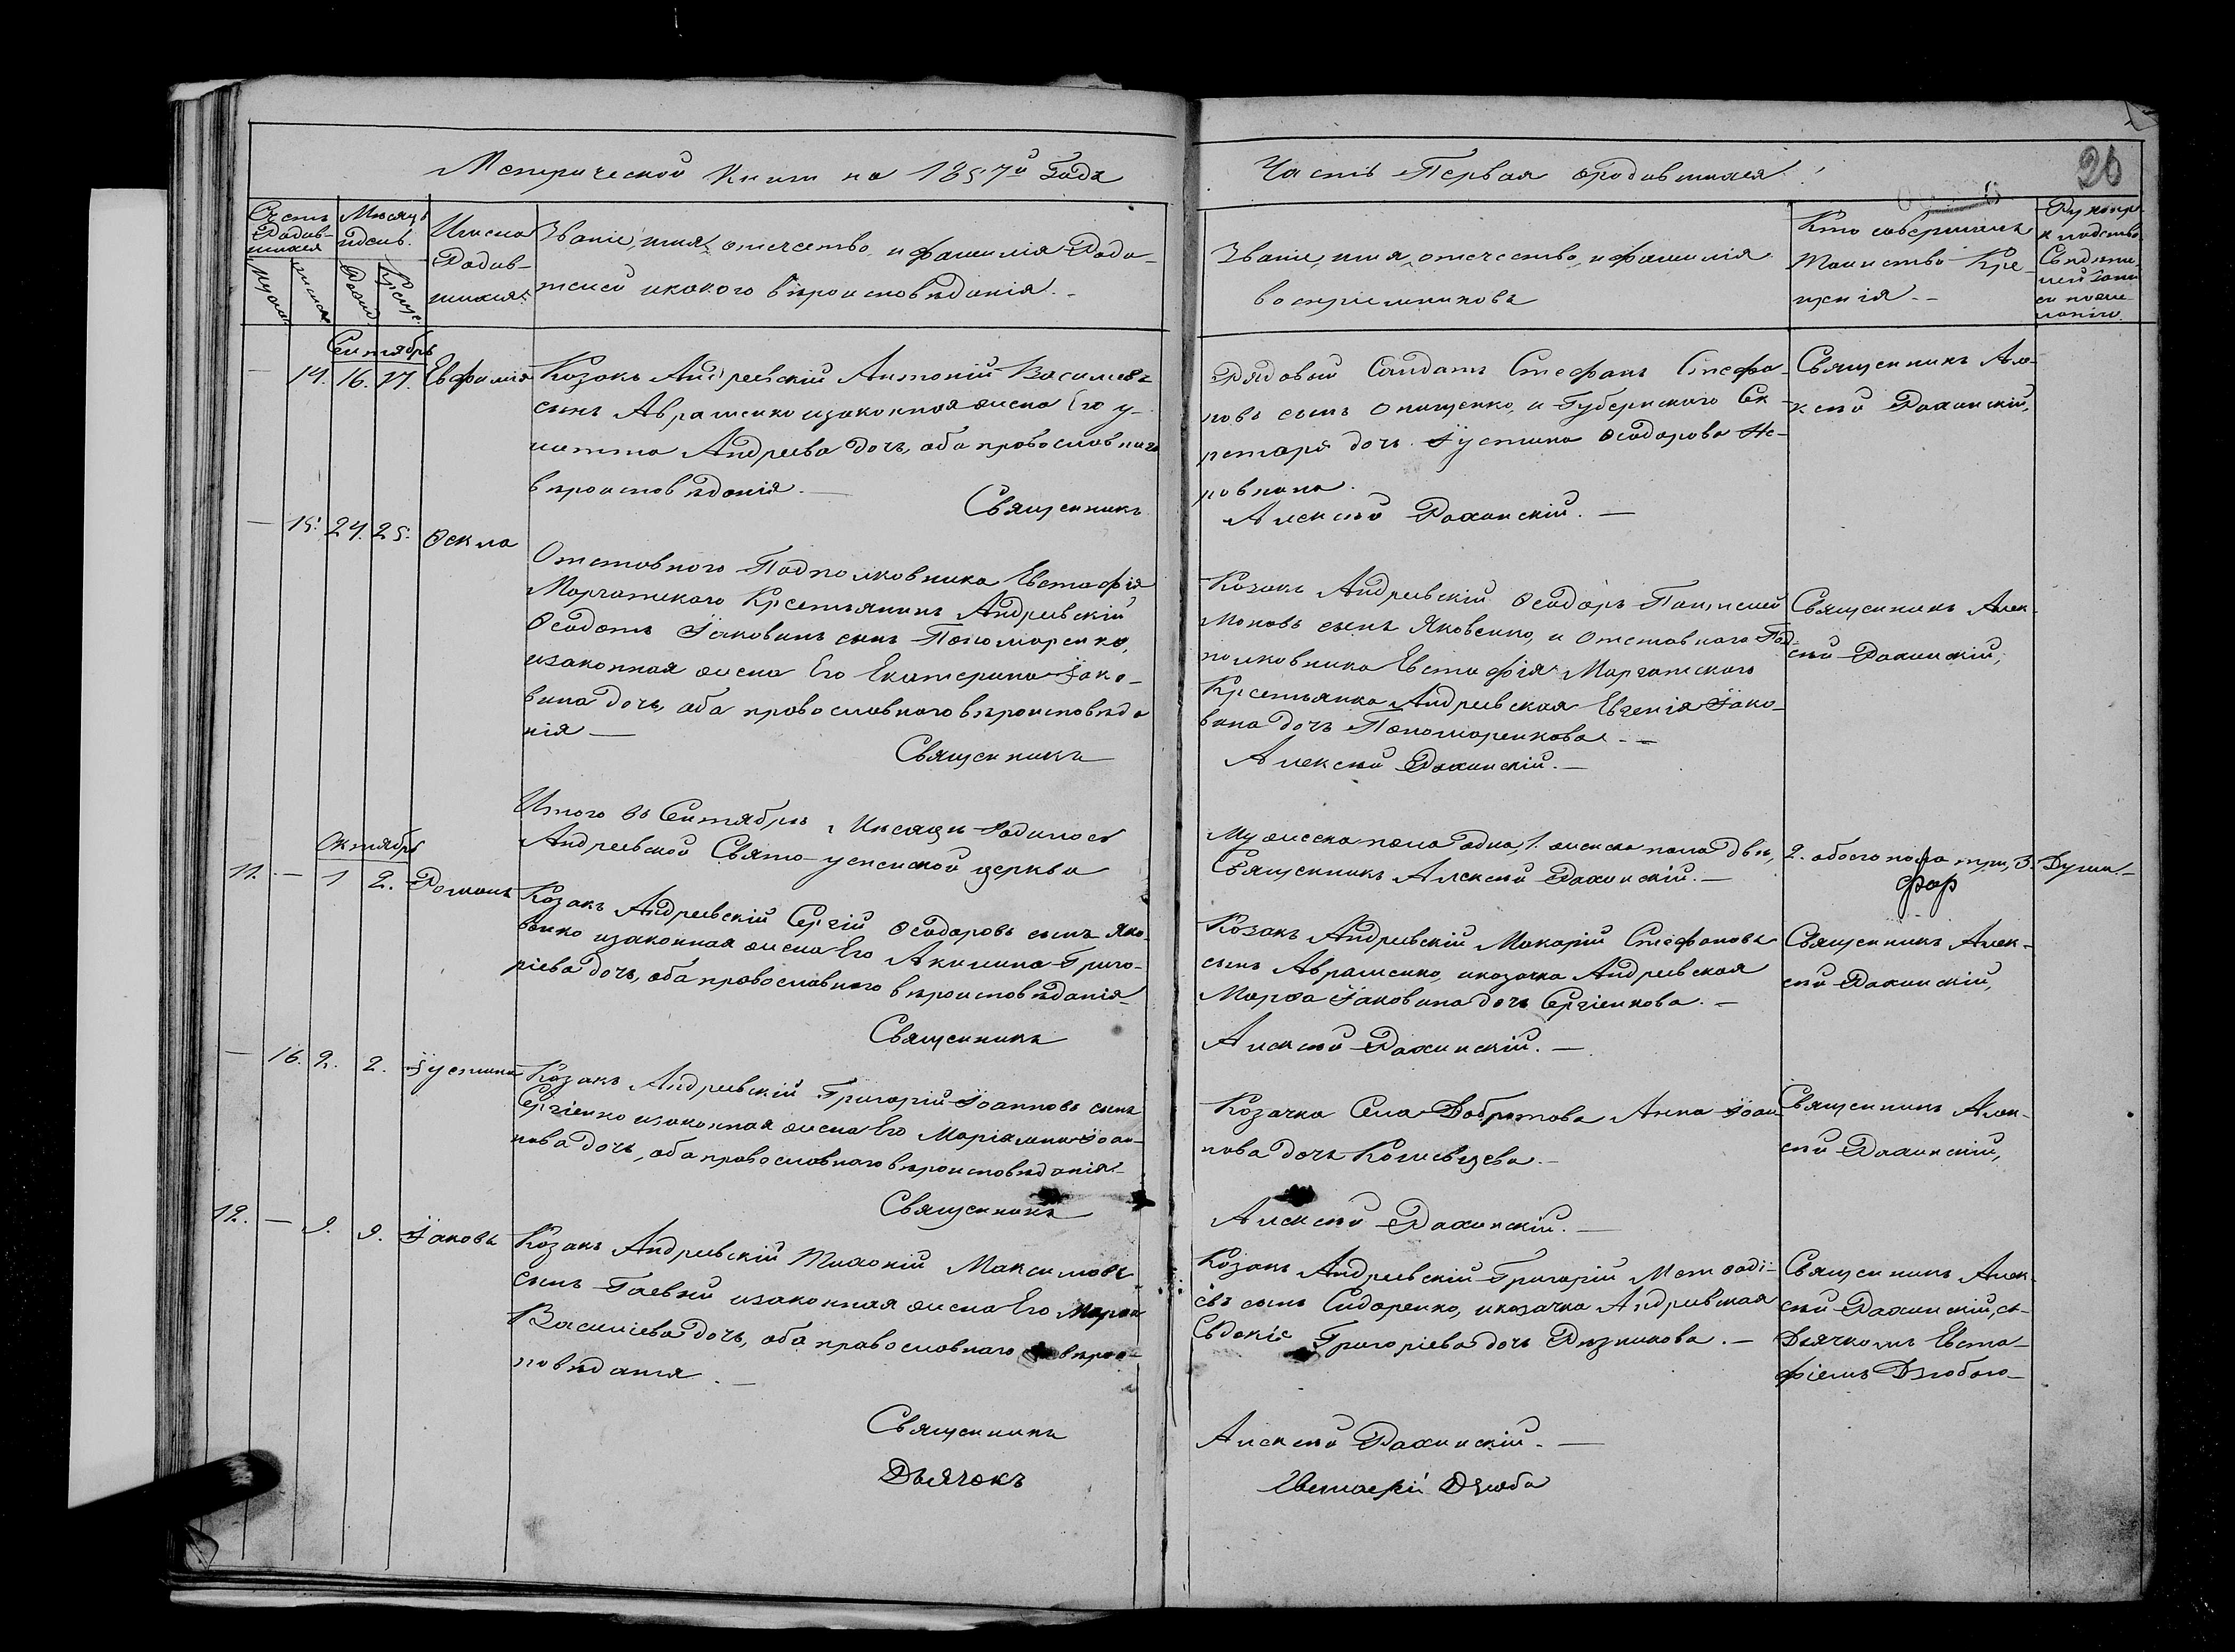 Метрической книги на 1857й Года
Часть Первая о родившихся
26
Счетъ Родив-
шихся
Мѣсяцъ
и день.
Имена
Родив-
шихся.
Званіе, имя, отечество, и фамилія Роди-
телей и какого вѣроисповѣданія.
Званіе, имя, отечество, и фамилія
воспріемниковъ
Кто совершалъ
Таинство Кре-
щенія.
Рукопри-
кладство
Свидѣте-
лей записи
по жела-
нію.
Сентябрь
— 14. 16. 17. Евфимія
Козакъ Андреевскій Антоній Васильевъ
сынъ Авраменко и законная жена Его у-
литта Андреева дочь, оба православнаго
вѣроисповѣданія. —
Священникъ
Рядовой Салдатъ Стефанъ Стефа-
новъ сынъ Онищенко, и Губернскаго Сек-
ретаря дочь Іустина Ѳеодорова Не-
ровнина.
Алексѣй Рахинскій. —
Священникъ Але-
ксѣй Рахинскій,
— 15. 24. 25. Ѳекла
Отставного Подполковника Евстафія
Марчатскаго Крестьянинъ Андреевскій
Ѳеодотъ Іаковинъ сынъ Пономаренко,
и законная жена Его Екатерина Іако-
вина дочь, оба православнаго вѣроисповѣда
нія —
Священникъ
Козакъ Андреевскій Ѳеодоръ Пантелей
моновъ сынъ Яковенко, и Отставного Под
полковника Евстафія Марчатскаго
Крестьянка Андреевская Евгенія Іако-
вина дочь Пономаренкова. —
Алексѣй Рахинскій. —
Священникъ Алек-
сѣй Рахинскій,
Итого въ Сентябрѣ Мѣсяцѣ Родилось
Андреевской Свято-успенской церкви
Мужеска пола одна, 1. женска пола двѣ, 2. обоего пола три, 3. Души. —
Священникъ Алексѣй Рахинскій. —
Октябрь
11. — 1 2. Романъ
Козакъ Андреевскій Сергій Ѳеодоровъ сынъ Яко-
венко и законная жена Его Акилина Григо-
ріева дочь, оба православнаго вѣроисповѣданія
Священникъ
Козакъ Андреевскій Макарій Стефановъ
сынъ Авраменко, и козачка Андреевская
Марѳа Іаковина дочь Сергіенкова. —
Алексѣй Рахинскій. —
Священникъ Алек-
сѣй Рахинскій,
— 16. 2. 2. Іустина
Козакъ Андреевскій Григорій Іоанновъ сынъ
Сергіенко и законная жена Его Маріямна Іоан-
нова дочь, оба православнаго вѣроисповѣданія
Священникъ
Козачка Села Добротова Анна Іоан
нова дочь Коливцева. —
Алексѣй Рахинскій. —
Священникъ Алек-
сѣй Рахинскій,
12. — 9. 9. Іаковъ
Козакъ Андреевскій Тихоній Максимовъ
сынъ Гаевый и законная жена Его Марѳа
Василіева дочь, оба православнаго вѣрои-
повѣданія. —
Священникъ
Дьячокъ
Козакъ Андреевскій Григорій Меѳоді-
евъ сынъ Сидоренко, и козачка Андреевская
Евдокіе Григоріева дочь Рѣзникова. —
Алексѣй Рахинскій. —
Евстафій Дзюба
Священникъ Алек-
сѣй Рахинскій, съ
Дьячкомъ Евста-
фіемъ Дзюбою —